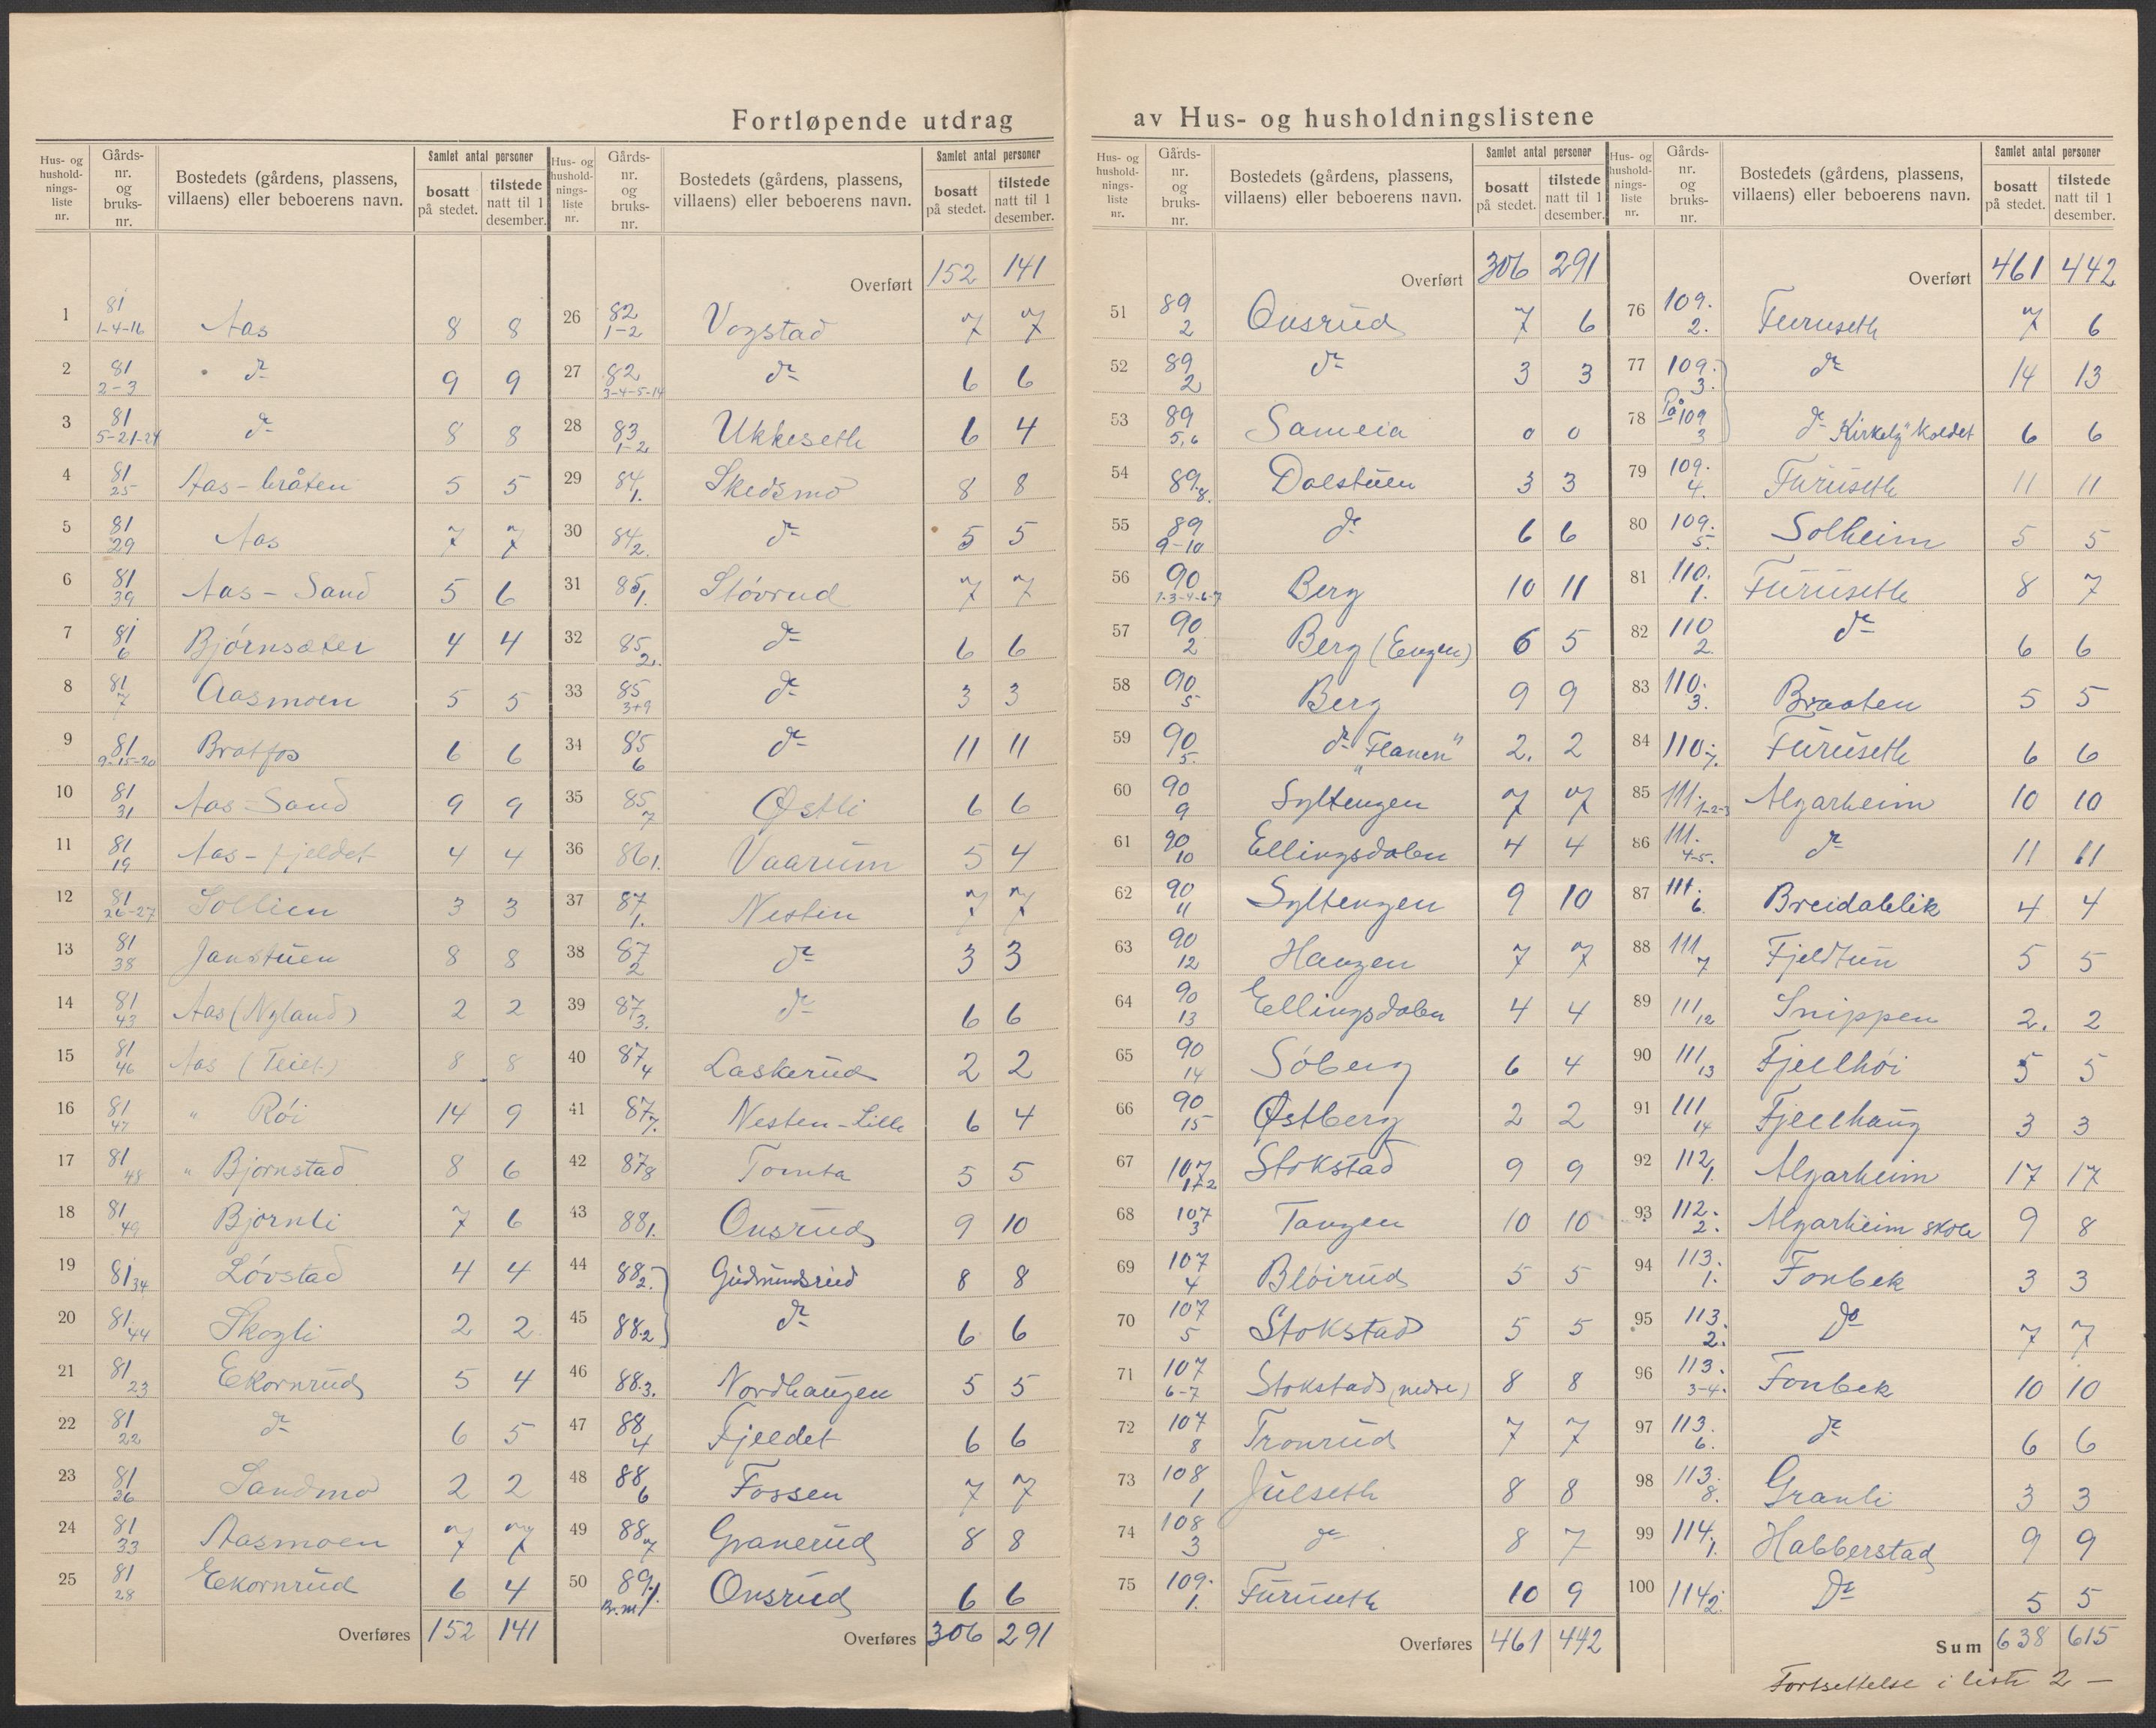 Fortløpende utdrag av Hus- og husholdningslistene
Hus- og hushold-nings-liste nr. | Gårds-nr. og bruks-nr. | Bostedets (gårdens, plassens, villaens) eller beboerens navn. | Samlet antal personer: bosatt på stedet. | tilstede natt til 1 desember.
1 | 81 1-4-16 | Aas | 8 | 8
2 | 81 2-3 | do | 9 | 9
3 | 81 5-21-24 | do | 8 | 8
4 | 81 25 | Aas-bråten | 5 | 5
5 | 81 29 | Aas | 7 | 7
6 | 81 39 | Aas - Sand | 5 | 6
7 | 81 6 | Bjørnsæter | 4 | 4
8 | 81 7 | Aasmoen | 5 | 5
9 | 81 9-15-20 | Bratfos | 6 | 6
10 | 81 31 | Aas-Sand | 9 | 9
11 | 81 19 | Aas-fjeldet | 4 | 4
12 | 81 26-27 | Sollien | 3 | 3
13 | 81 38 | Janstuen | 8 | 8
14 | 81 43 | Aas (Nyland) | 2 | 2
15 | 81 46 | Aas | 8 | 8
16 | 81 47 | " Røi | 14 | 9
17 | 81 48 | " Bjørnstad | 8 | 6
18 | 81 49 | Bjørnli | 7 | 6
19 | 81 34 | Løvstad | 4 | 4
20 | 81 44 | Skogli | 2 | 2
21 | 81 23 | Ekornrud | 5 | 4
22 | 81 22 | do | 6 | 5
23 | 81 36 | Sandmo | 2 | 2
24 | 81 33 | Aasmoen | 7 | 7
25 | 81 28 | Ekornrud | 6 | 4
Overføres | 152 | 141
Hus- og hushold-nings-liste nr. | Gårds-nr. og bruks-nr. | Bostedets (gårdens, plassens, villaens) eller beboerens navn. | Samlet antal personer: bosatt på stedet. | tilstede natt til 1 desember.
Overført | 152 | 141
26 | 82 1-2 | Vogstad | 7 | 7
27 | 82 3-4-5-14 | do | 6 | 6
28 | 83 1-2 | Ukkeseth | 6 | 4
29 | 84 1. | Skedsmo | 8 | 8
30 | 84 2. | do | 5 | 5
31 | 85 1. | Støvrud | 7 | 7
32 | 85 2. | do | 6 | 6
33 | 85 3+9 | do | 3 | 3
34 | 85 6 | do | 11 | 11
35 | 85 7 | Østli | 6 | 6
36 | 86 1. | Vaarum | 5 | 4
37 | 87 1. | Nesten | 7 | 7
38 | 87 2 | do | 3 | 3
39 | 87 3. | do | 6 | 6
40 | 87 4 | Laskerud | 2 | 2
41 | 87 7. | Nesten-Lille | 6 | 4
42 | 87 8 | Tomta | 5 | 5
43 | 88 1. | Onsrud | 9 | 10
44 | 88 2. | Gudmundsrud | 8 | 8
45 | 88.2 | do | 6 | 6
46 | 88.3. | Nordhaugen | 5 | 5
47 | 88 4 | Fjeldet | 6 | 6
48 | 88 6 | Fossen | 7 | 7
49 | 88 7 | Granerud | 8 | 8
50 | 89.1. Br.m | Onsrud | 6 | 6
Overføres | 306 | 291
Hus- og hushold-nings-liste nr. | Gårds-nr. og bruks-nr. | Bostedets (gårdens, plassens, villaens) eller beboerens navn. | Samlet antal personer: bosatt på stedet. | tilstede natt til 1 desember.
Overført | 306 | 291
51 | 89 2 | Onsrud | 7 | 6
52 | 89 2 | do | 3 | 3
53 | 89 5,6 | Sameia | 0 | 0
54 | 89.8. | Dalstuen | 3 | 3
55 | 89 9-10 | do | 6 | 6
56 | 90 1-3-4-6-7 | Berg | 10 | 11
57 | 90 2 | Berg (Engen) | 6 | 5
58 | 90 5 | Berg | 9 | 9
59 | 90 5. | do "Flanen" | 2. | 2
60 | 90 9 | Syltengen | 7 | 7
61 | 90 10 | Ellingsdalen | 4 | 4
62 | 90 11 | Syltengen | 9 | 10
63 | 90 12 | Haugen | 7 | 7
64 | 90 13 | Ellingsdalen | 4 | 4
65 | 90 14 | Søberg | 6 | 4
66 | 90 15 | Østberg | 2 | 2
67 | 107 1+2 | Stokstad | 9 | 9
68 | 107 3 | Tangen | 10 | 10
69 | 107 4 | Bløirud | 5 | 5
70 | 107 5 | Stokstad | 5 | 5
71 | 107 6-7 | Stokstad (nedre) | 8 | 8
72 | 107 8 | Tronrud | 7 | 7
73 | 108 1 | Julseth | 8 | 8
74 | 108 3 | do | 8 | 7
75 | 109. 1. | Furuseth | 10 | 9
Overføres | 461 | 442
Hus- og hushold-nings-liste nr. | Gårds-nr. og bruks-nr. | Bostedets (gårdens, plassens, villaens) eller beboerens navn. | Samlet antal personer: bosatt på stedet. | tilstede natt til 1 desember.
Overført | 461 | 442
76 | 109. 2. | Furuseth | 7 | 6
77 | 109. 3. | do | 14 | 13
78 | På 109 3 | do | 6 | 6
79 | 109. 4. | Furuseth | 11 | 11
80 | 109. 5. | Solheim | 5 | 5
81 | 110. 1. | Furuseth | 8 | 7
82 | 110 2. | do | 6 | 6
83 | 110. 3. | Braaten | 5 | 5
84 | 110. 7. | Furuseth | 6 | 6
85 | 111. 1-2-3 | Algarheim | 10 | 10
86 | 111. 4-5. | do | 11 | 11
87 | 111. 6. | Breidablik | 4 | 4
88 | 111 7 | Fjeldtun | 5 | 5
89 | 111 12 | Snippen | 2. | 2
90 | 111 13 | Fjellhøi | 5 | 5
91 | 111 14 | Fjellhaug | 3 | 3
92 | 112 1. | Algarheim | 17 | 17
93 | 112. 2. | Algarheim skole | 9 | 8
94 | 113. 1. | Fonbek | 3 | 3
95 | 113. 2. | Do | 7 | 7
96 | 113. 3-4. | Fonbek | 10 | 10
97 | 113. 6. | do | 6 | 6
98 | 113. 8. | Granli | 3 | 3
99 | 114. 1. | Habberstad | 9 | 9
100 | 114 2. | Do | 5 | 5
Sum | 638 | 615
Fortsettelse i liste 2 —